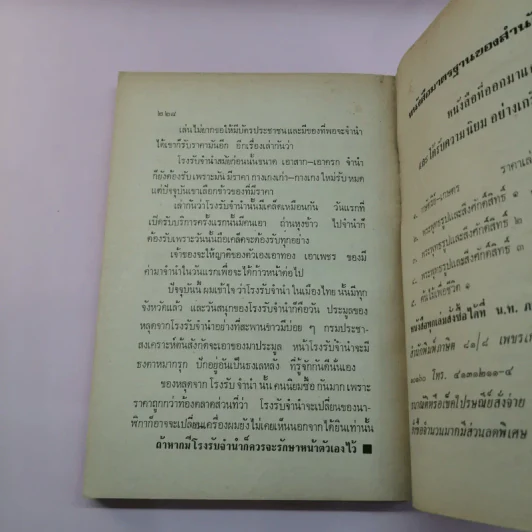 ๒๒๘
เล่นไม่ยากขอให้มีบัตรประชาชนและมีของที่พอจะจำนำ
ได้เขาก็รับราคามันอีก อีกเรื่องเล่ากันว่า
โรงรับจำนำสมัยก่อนนั้นขนาด เอาสาก-เอาครก จำนำ
ก็ยังต้องรับเพราะมันมีราคา กางเกงเก่า-กางเกงใหม่รับหมด
แต่ปัจจุบันเขาเลือกข้าวของที่มีราคา
เล่ากันว่าโรงรับจำนำนี้มีเคล็ดเหมือนกัน วันแรกที่
เปิดรับบริการครั้งแรกนั้นมีคนเอา ถ่านหุงข้าว ไปจำนำก็
ต้องรับเพราะวันนั้นถือเคล็ดจะต้องรับทุกอย่าง
เจ้าของจะให้ญาติของตัวเองเอาทอง เอาเพชร ของมี
ค่ามาจำนำในวันแรกเพื่อจะได้ก้าวหน้าต่อไป
ปัจจุบันนี้ ผมเข้าใจว่าโรงรับจำนำ ในเมืองไทย นั้นมีทุก
จังหวัดแล้ว และวันสนุกของโรงรับจำนำก็คือวัน ประมูลของ
หลุดจากโรงรับจำนำอย่างที่สะพานขาวมีบ่อย ๆ กรมประชา-
สงเคราะห์ต้นสังกัดจะเอาของมาประมูล หน้าโรงรับจำนำจะมี
ธงตาหมากรุก ปักอยู่อันเป็นธงเลหลัง ที่รู้จักกันดีนั่นเอง
ของหลุดจาก โรงรับจำนำ นั้น คนนิยมซื้อ กันมาก เพราะ
ราคาถูกกว่าท้องตลาดส่วนที่ว่า โรงรับจำนำจะเปลี่ยนของนา-
ฬิกาก็อาจจะเปลี่ยนเครื่องผมยังไม่เคยเห็นนอกจากได้ยินเท่านั้น
ถ้าหากมีโรงรับจำนำก็ควรจะรักษาหน้าตัวเองไว้ ■
หนังสือมาตรฐานของสำนัก
หนังสือที่ออกมาแล
และได้รับความนิยม อย่างเกรี
ราคาเล่
๒. พระพุทธรูปและสิ่งศักดิ์สิทธิ์ ๑
๓. พระพุทธรูปและสิ่งศักดิ์สิทธิ์ ๒
๔. พระพุทธรูปและสิ่งศักดิ์สิทธิ์ ๓
หนังสือทุกเล่มสั่งซื้อได้ที่ น.ท. ภ
สำนักพิมพ์ภาษิต ๘๑/๘ เพชรเก
โทร. ๔๑๓๑๒๑๑-๔
ธนาณัติหรือเช็คไปรษณีย์สั่งจ่าย
สั่งซื้อจำนวนมากมีส่วนลดพิเศษ